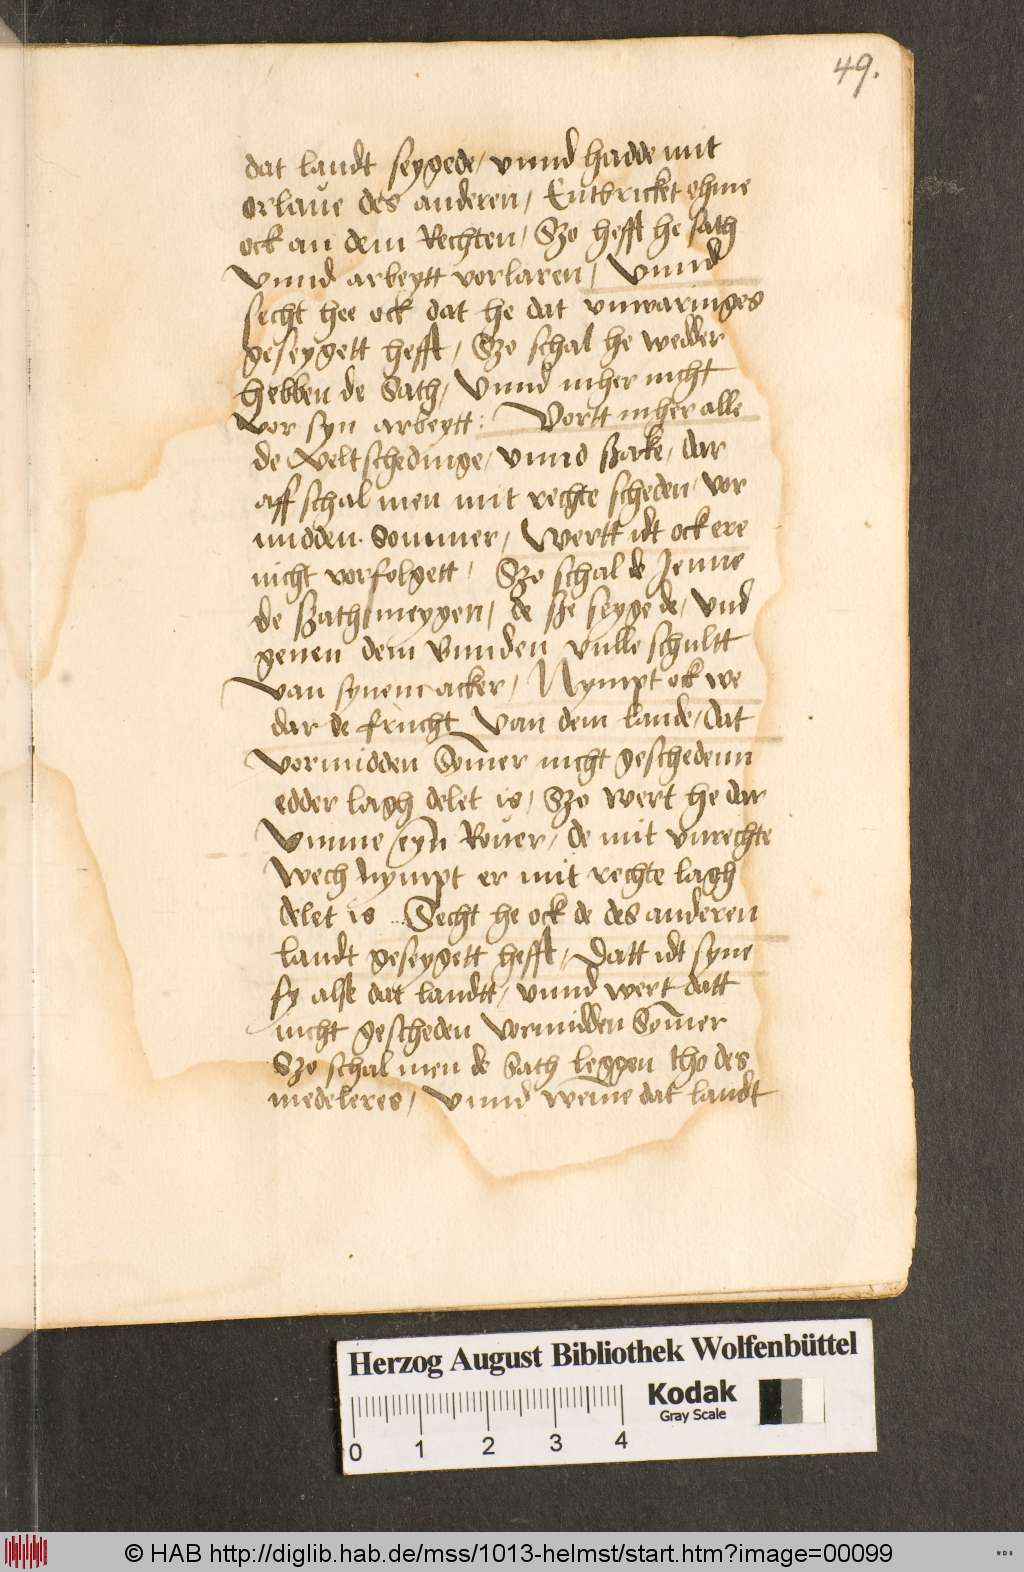 49.
dat landt seygede / vnnd hadde mit
orlaue des anderen / Entbricket ohme
ock an dem Rechten / Szo hefft he sath
Vnnd arbeytt vorlaren / Vnnd
secht hee ock dat he dat vnwaringes
geseygett hefft / Szo schal he wedder
hebben de Sath / Vnnd inher nicht
vor syn arbeytt : Vortt inher alle
de veltschedinge / vnnd szake / dar
aff schal men mit rechte scheden vor
midden Sommer / Wertt idt ock ere
nicht vorfolgett / Szo schal de Jenne
de szath meygen / de sze seygede / vnd
geuen dem vunden vulle schultt
van synem acker / Nympt ock we
dar de frucht van dem lande / dat
vormidden Somer nicht geschedenn
edder lagh delet is / Szo wert he dar
Vmme eyn Rouer / de mit vnrechte
wech nympt er mit rechte lagh
delet is Secht he ock de des anderen
landt geseygett hefft / Datt idt syne
sy alse dat landtt / vnnd wert datt
nicht gescheden vormidden Somer
Szo schal men de Sath leggen tho des
medeleres / Vnnd weme dat landt
Herzog August Bibliothek Wolfenbüttel
Kodak
Gray Scale
0 1 2 3 4
© HAB http://diglib.hab.de/mss/1013-helmst/start.htm?image=00099